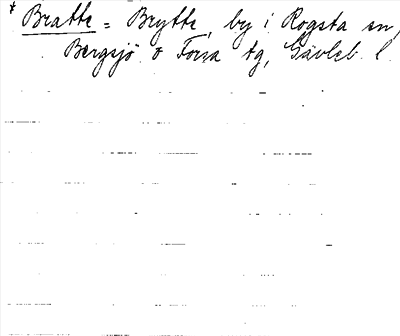 * Bratte = Brytte, by i Rogsta sn,
Bergsjö o Forsa tg, Gävleb. l.